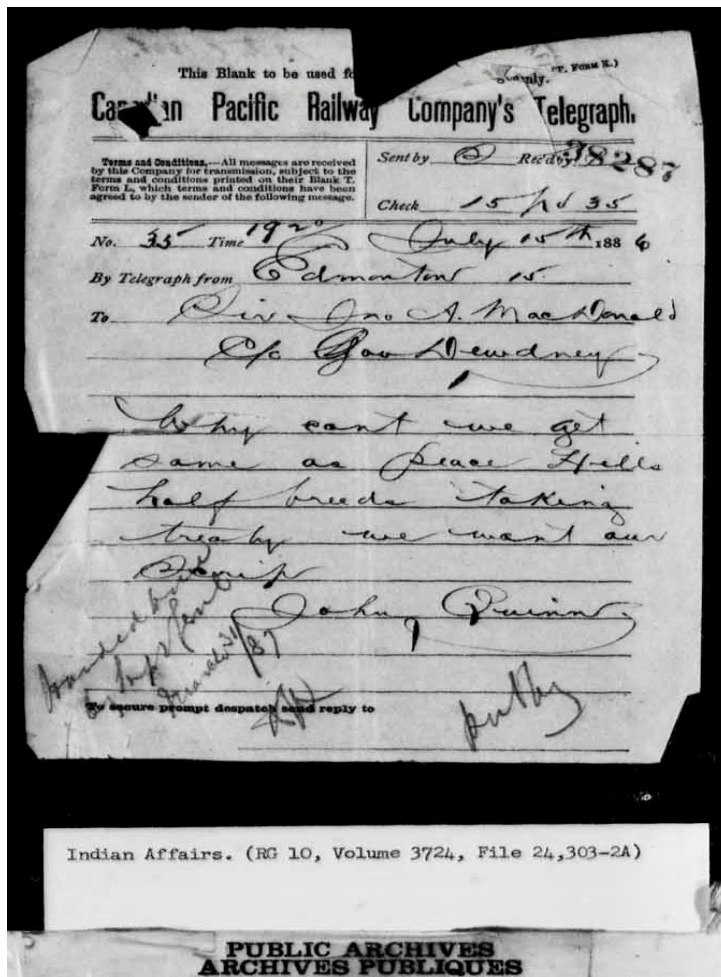 T. Form K.)
This Blank to be used
only.
Canadian Pacific Railway Company's Telegraph.
Terms and Conditions.—All messages are received
by this Company for transmission, subject to the
terms and conditions printed on their Blank T.
Form L, which terms and conditions have been
agreed to by the sender of the following message.
Sent by Rec'd by 38287
Check 15 pd 35
No. 35 Time 1920 July 15th 1886
By Telegraph from Edmonton 15
To Sir Jno A. MacDonald
C/o Gov Dewdney
Why cant we get
same as peace Hills
half breeds taking
treaty we want our
Scrip
John Quinn
handed
by Supt Genl
March 31/87
To secure prompt despatch send reply to
Indian Affairs. (RG 10, Volume 3724, File 24,303-2A)
PUBLIC ARCHIVES
ARCHIVES PUBLIQUES